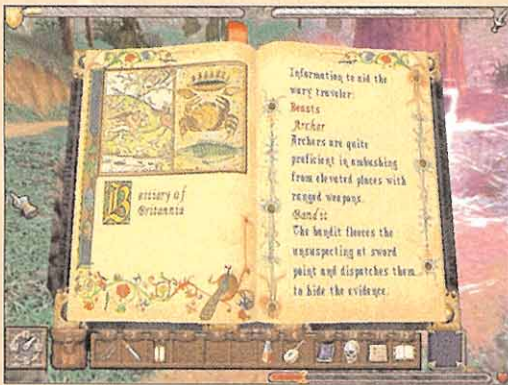 Bestiary of
Britannia
Information to aid the
wary traveler:
Beasts
Archer
Archers are quite
proficient in ambushing
from elevated places with
ranged weapons.
Bandit
The bandit fleeces the
unsuspecting at sword
point and dispatches them
to hide the evidence.